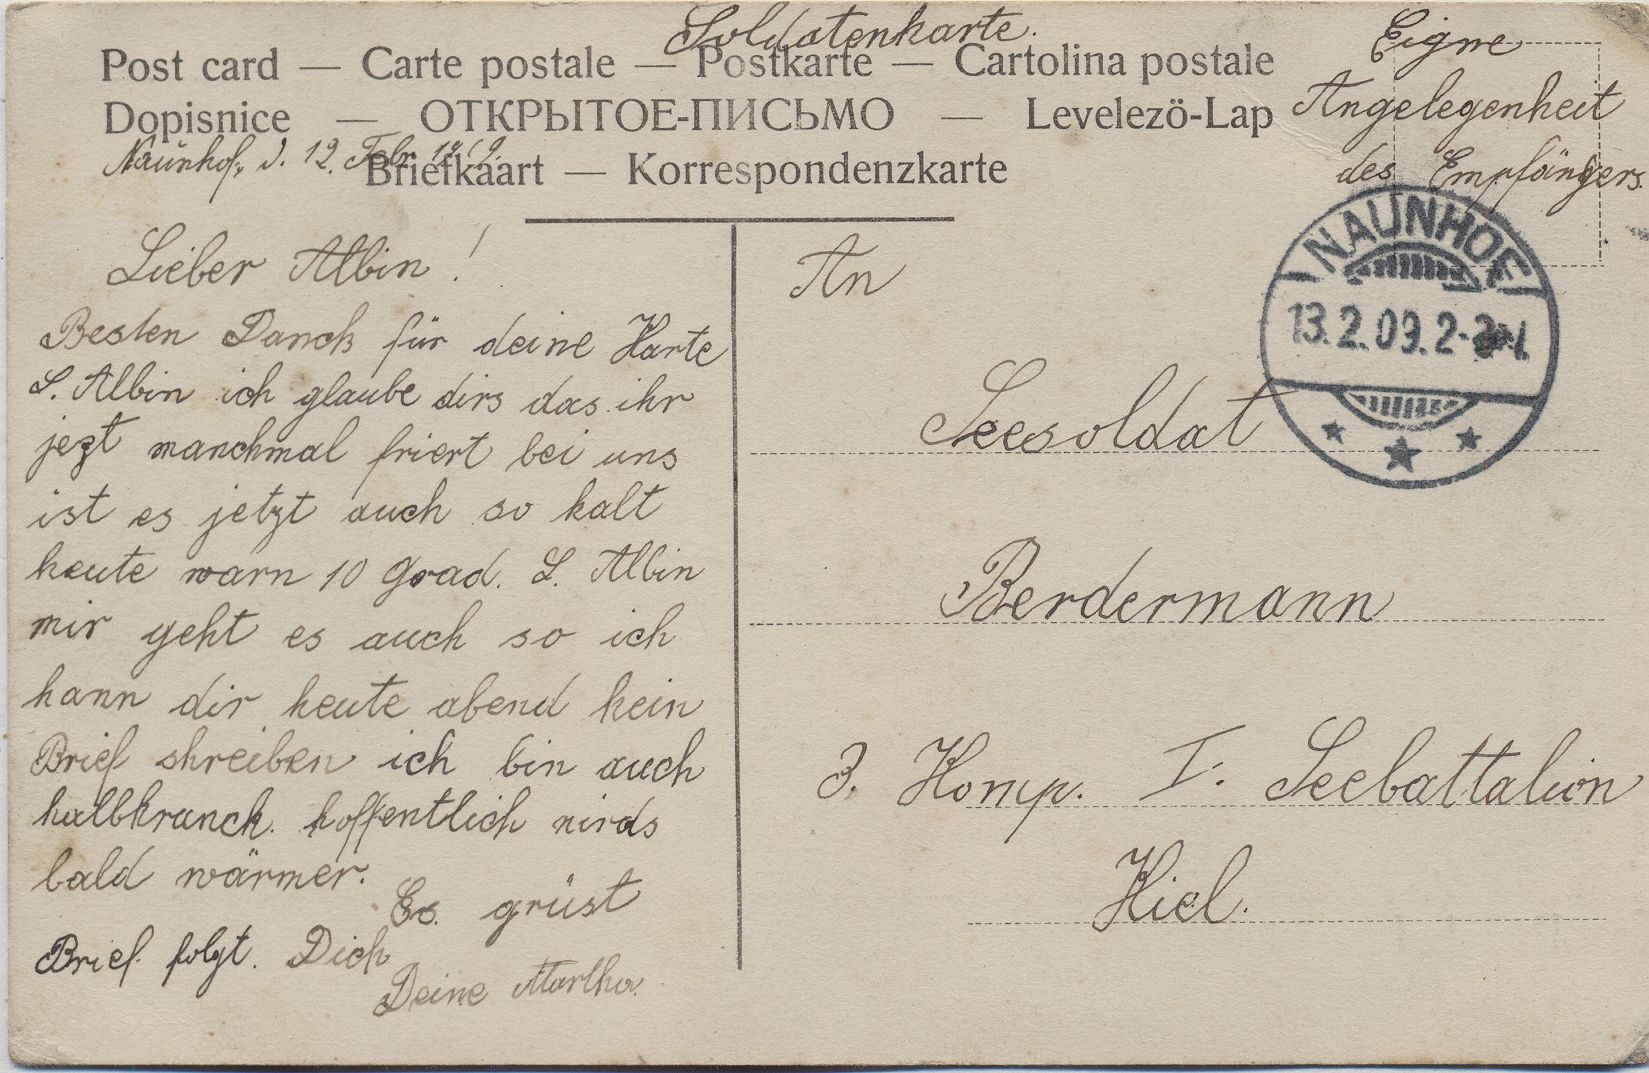 Soldatenkarte.
Eigne
Angelegenheit
des Empfängers.
Post card — Carte postale — Postkarte — Cartolina postale
Dopisnice — ОТКРЫТОЕ-ПИСЬМО — Levelezö-Lap
Briefkaart — Korrespondenzkarte
Naunhof, d. 12. Febr. 1909.
Lieber Albin!
Besten Danck für deine Karte
L. Albin ich glaube dirs das ihr
jezt manchmal friert bei uns
ist es jetzt auch so kalt
heute warn 10 Grad. L. Albin
mir geht es auch so ich
kann dir heute abend kein
Brief shreiben ich bin auch
halbkranck. hoffentlich wirds
bald wärmer.
Es grüst
Brief folgt. Dich
Deine Martha.
NAUNHOF
13.2.09.2-
An
Seesoldat
Berdermann
3. Komp. I. Seebattalion
Kiel.